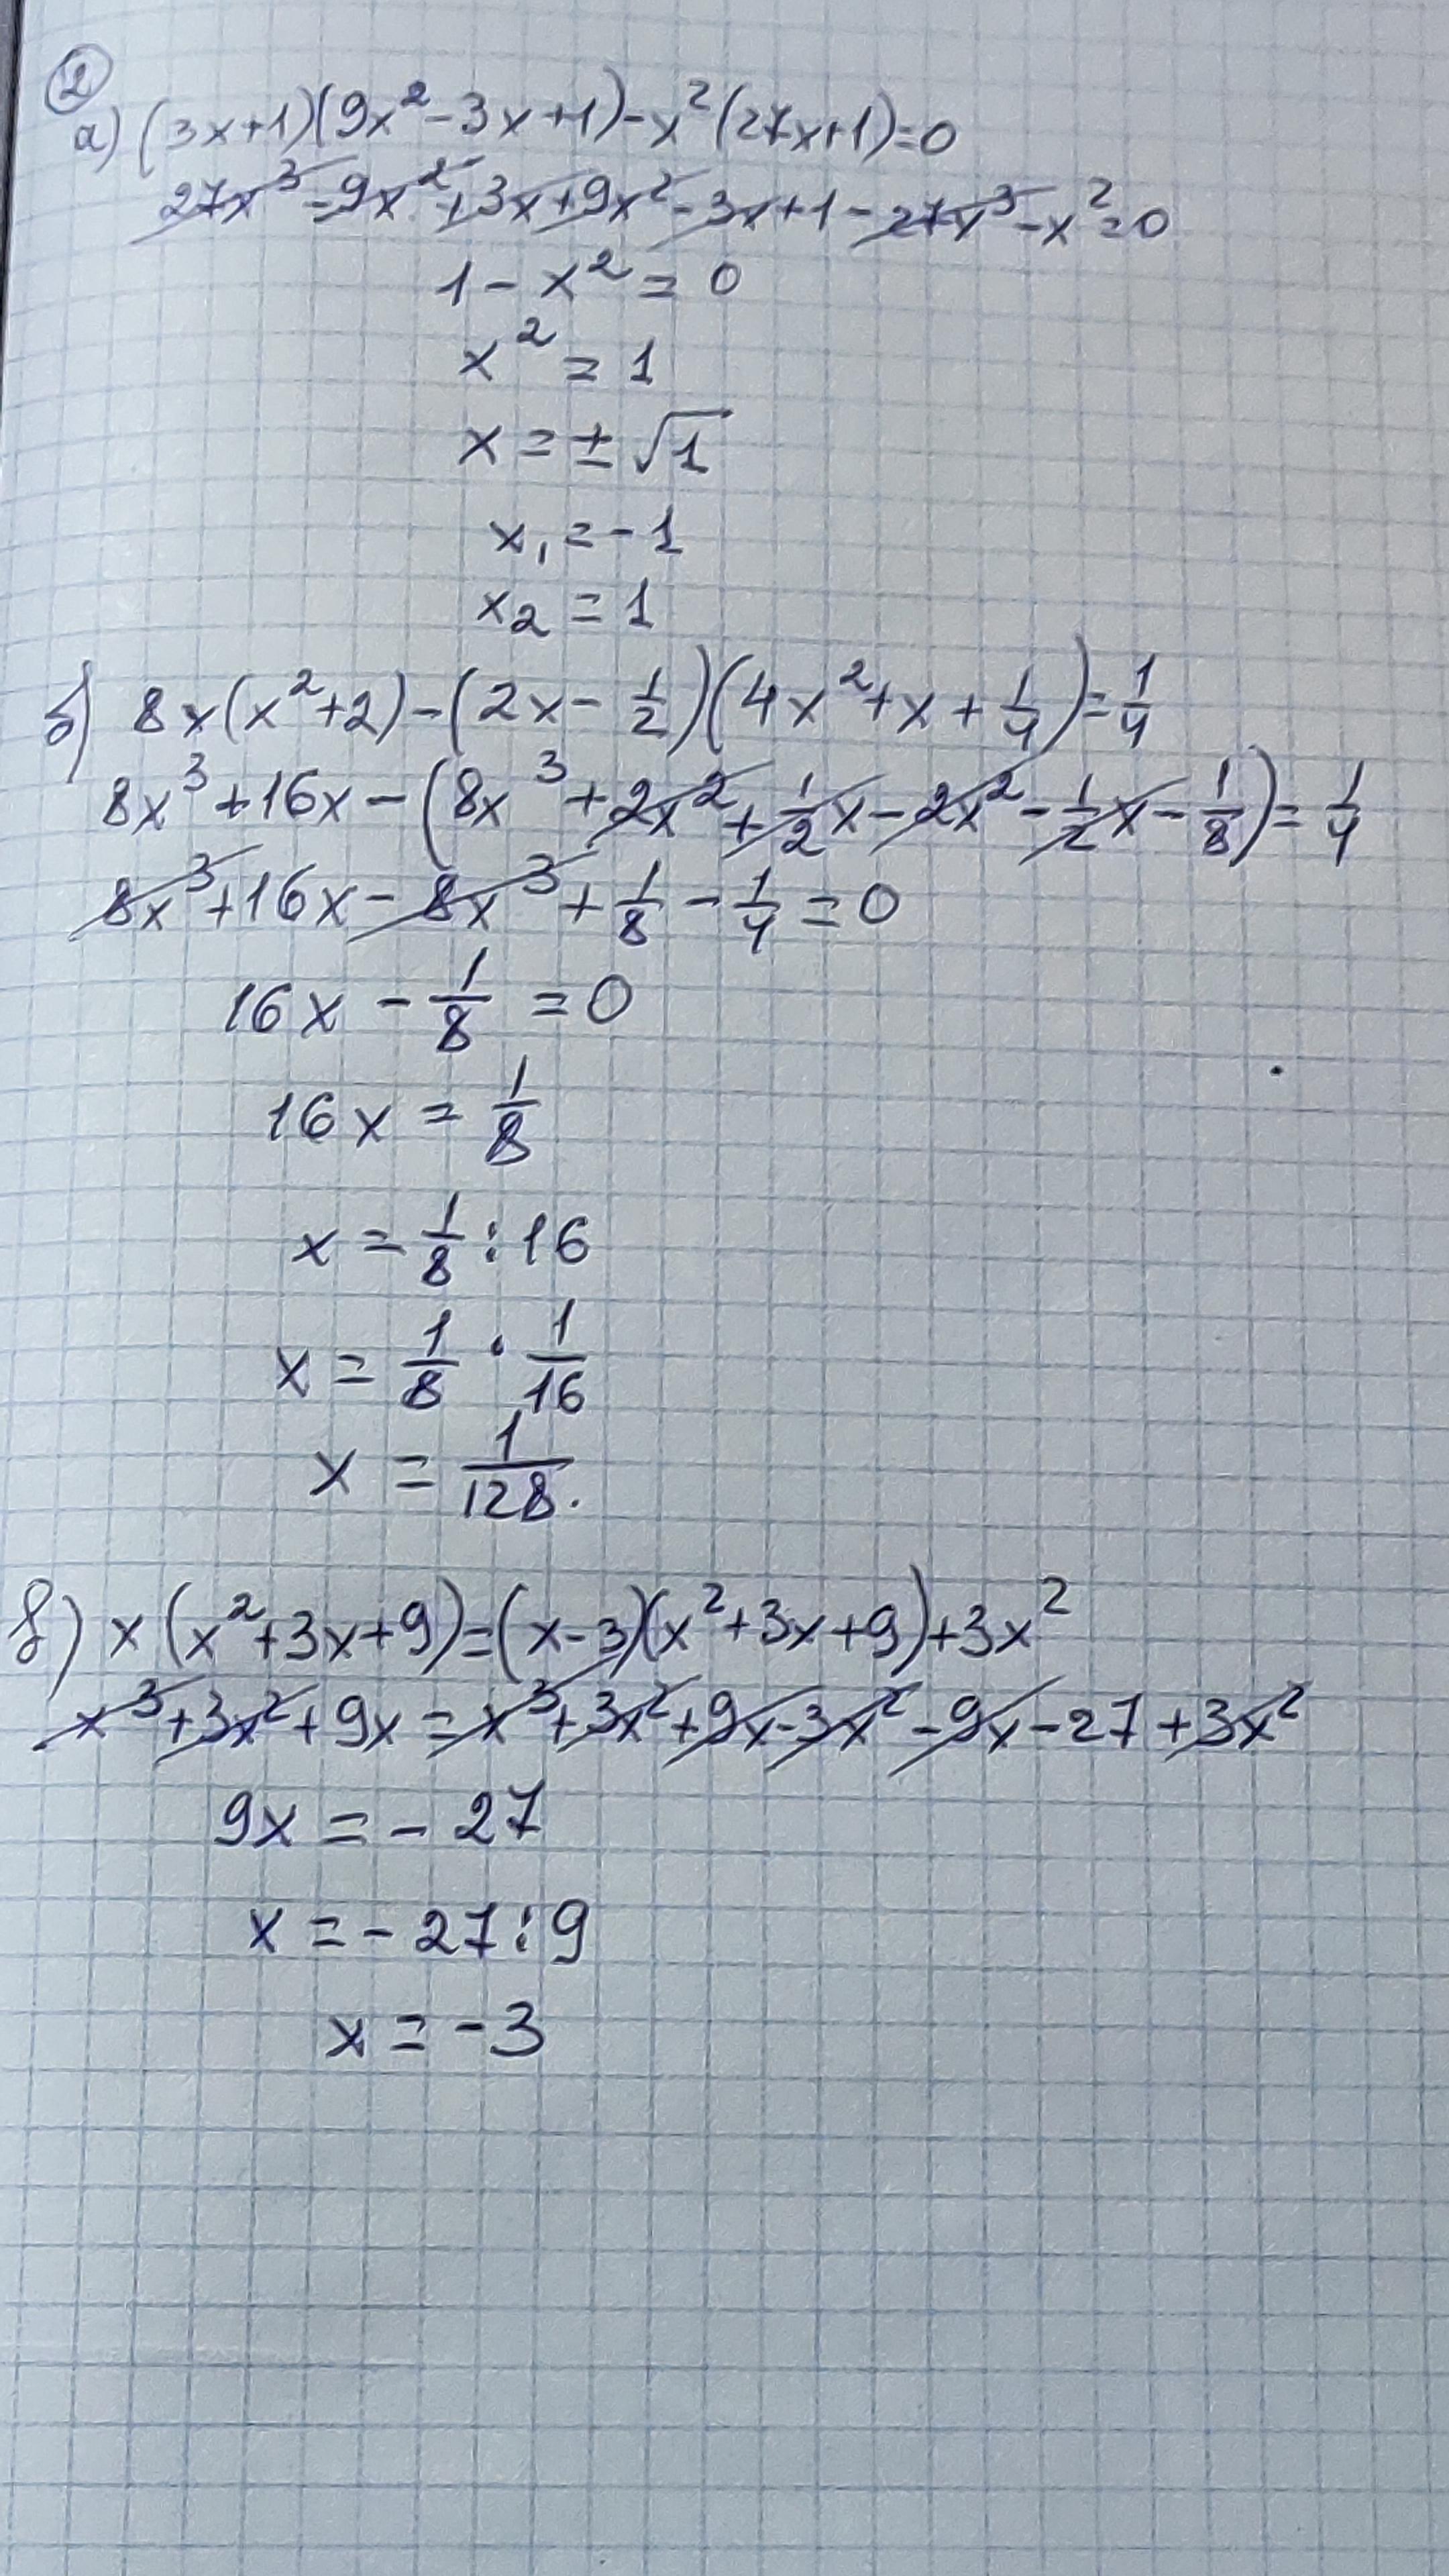 2
а) (3x+1)(9x²-3x+1)-x²(27x+1)=0
27x³-9x²+3x+9x²-3x+1-27x³-x²=0
1-x²=0
x²=1
x=±√1
x₁=-1
x₂=1
б) 8x(x²+2)-(2x-1/2)(4x²+x+1/4)=1/4
8x³+16x-(8x³+2x²+1/2x-2x²-1/2x-1/8)=1/4
8x³+16x-8x³+1/8-1/4=0
16x-1/8=0
16x=1/8
x=1/8:16
x=1/8·1/16
x=1/128.
в) x(x²+3x+9)=(x-3)(x²+3x+9)+3x²
x³+3x²+9x=x³+3x²+9x-3x²-9x-27+3x²
9x=-27
x=-27:9
x=-3